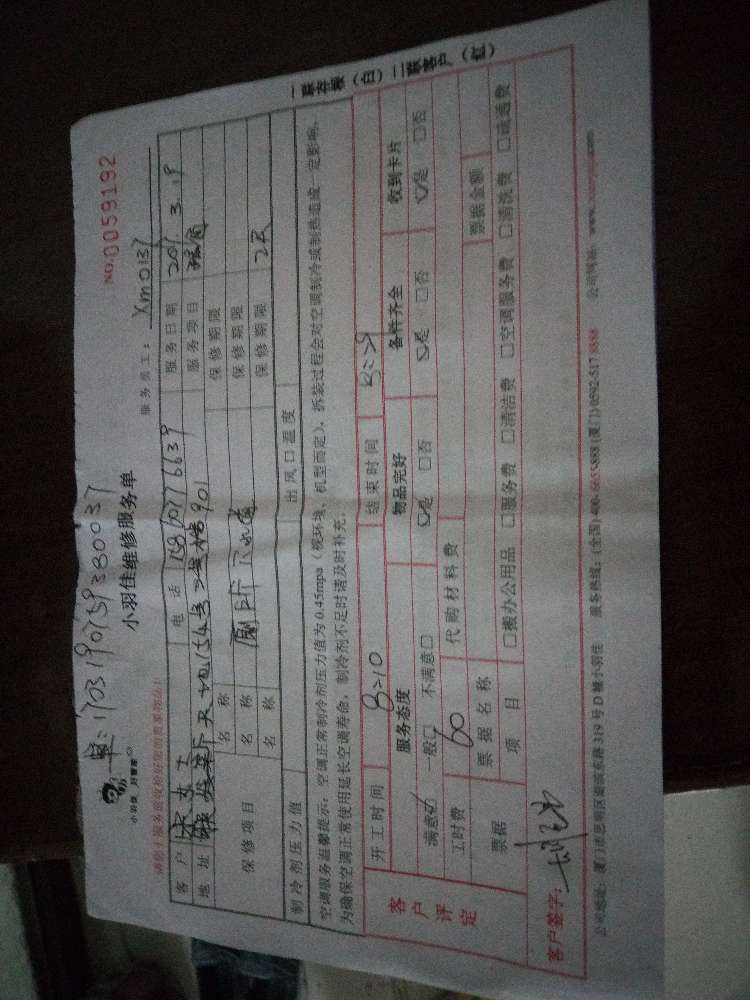 NO.0059192
单:170319075938003
小羽佳 好管家
小羽佳维修服务单
服务员工: Xm0137
请您于服务前收拾好您的贵重物品!
客户 宋女士 电话 服务日期 3.19
地址 154号 901 服务项目
保修项目 名称 保修期限
名称 厕所 保修期限
名称 保修期限 2天
制冷剂压力值 出风口温度
空调服务温馨提示:空调正常制冷剂压力值为0.45mpa(视环境、机型而定),拆装过程会对空调制冷或制热造成一定影响,
为确保空调正常使用延长空调寿命,制冷剂不足时请及时补充。
客户评定 开工时间 8:10 结束时间
服务态度 物品完好 备件齐全 收到卡片
满意☑ 一般□ 不满意□ ☑是 □否 ☑是 □否 ☑是 □否
工时费 60 代购材料费
票据 票据名称 票据金额
项目 □搬办公用品 □服务费 □清洁费 □空调服务费 □清洗费 □疏通费
客户签字:
公司地址:厦门市思明区湖滨东路319号D幢小羽佳 服务热线:(全国)400-6655-888 (厦门) 0592-517 8888 公司网站:
一联存根(白) 二联客户(红)